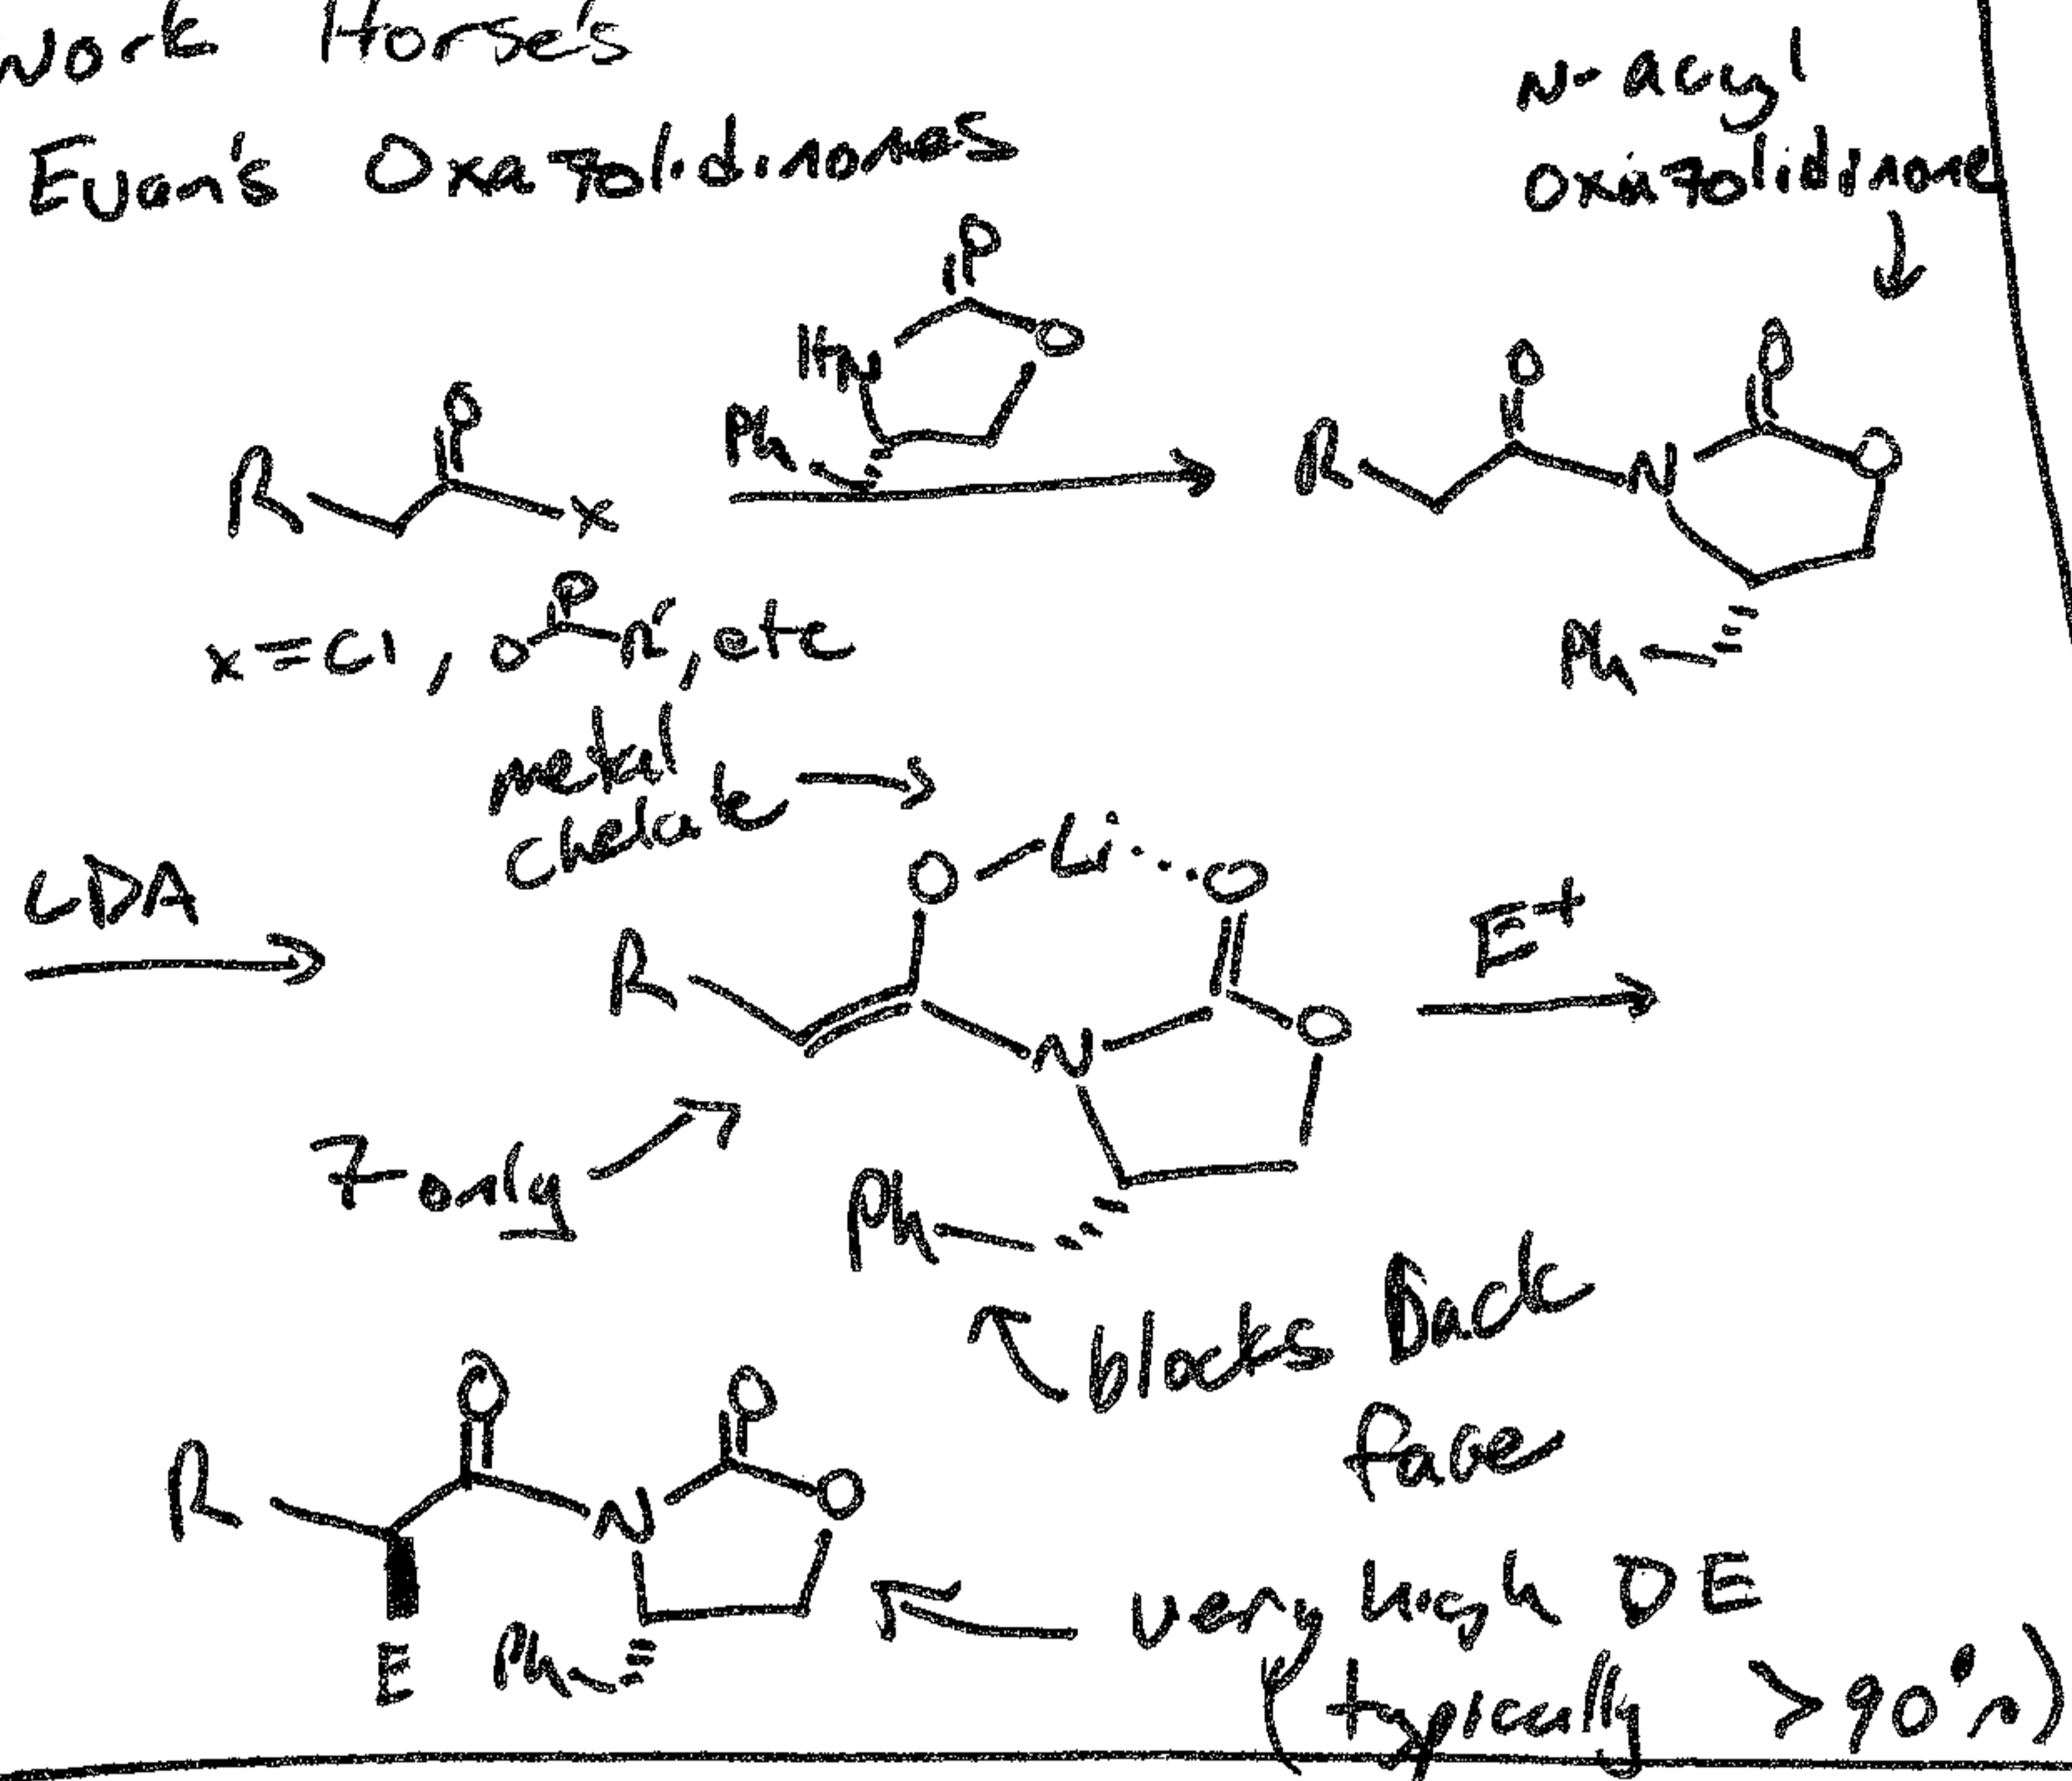 Work Horse's
Evan's Oxazolidinones
N-acyl
oxazolidinone
O
HN
O
Ph
O
R
X
O
O
R
N
O
Ph
x = Cl, O
O
R', etc
metal
chelate
LDA
O-Li...O
R
N
O
E+
Z only
Ph
blocks Back
face
O
O
R
N
O
E
Ph
very high DE
(typically >90%)